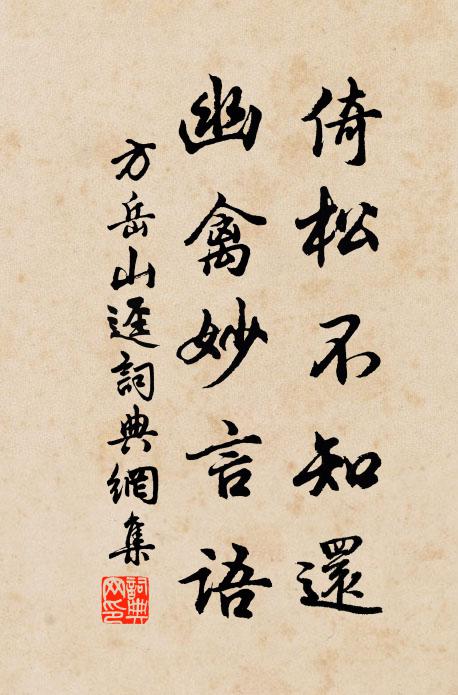 倚松不知還
幽禽妙言語
方岳山逕詞典網集